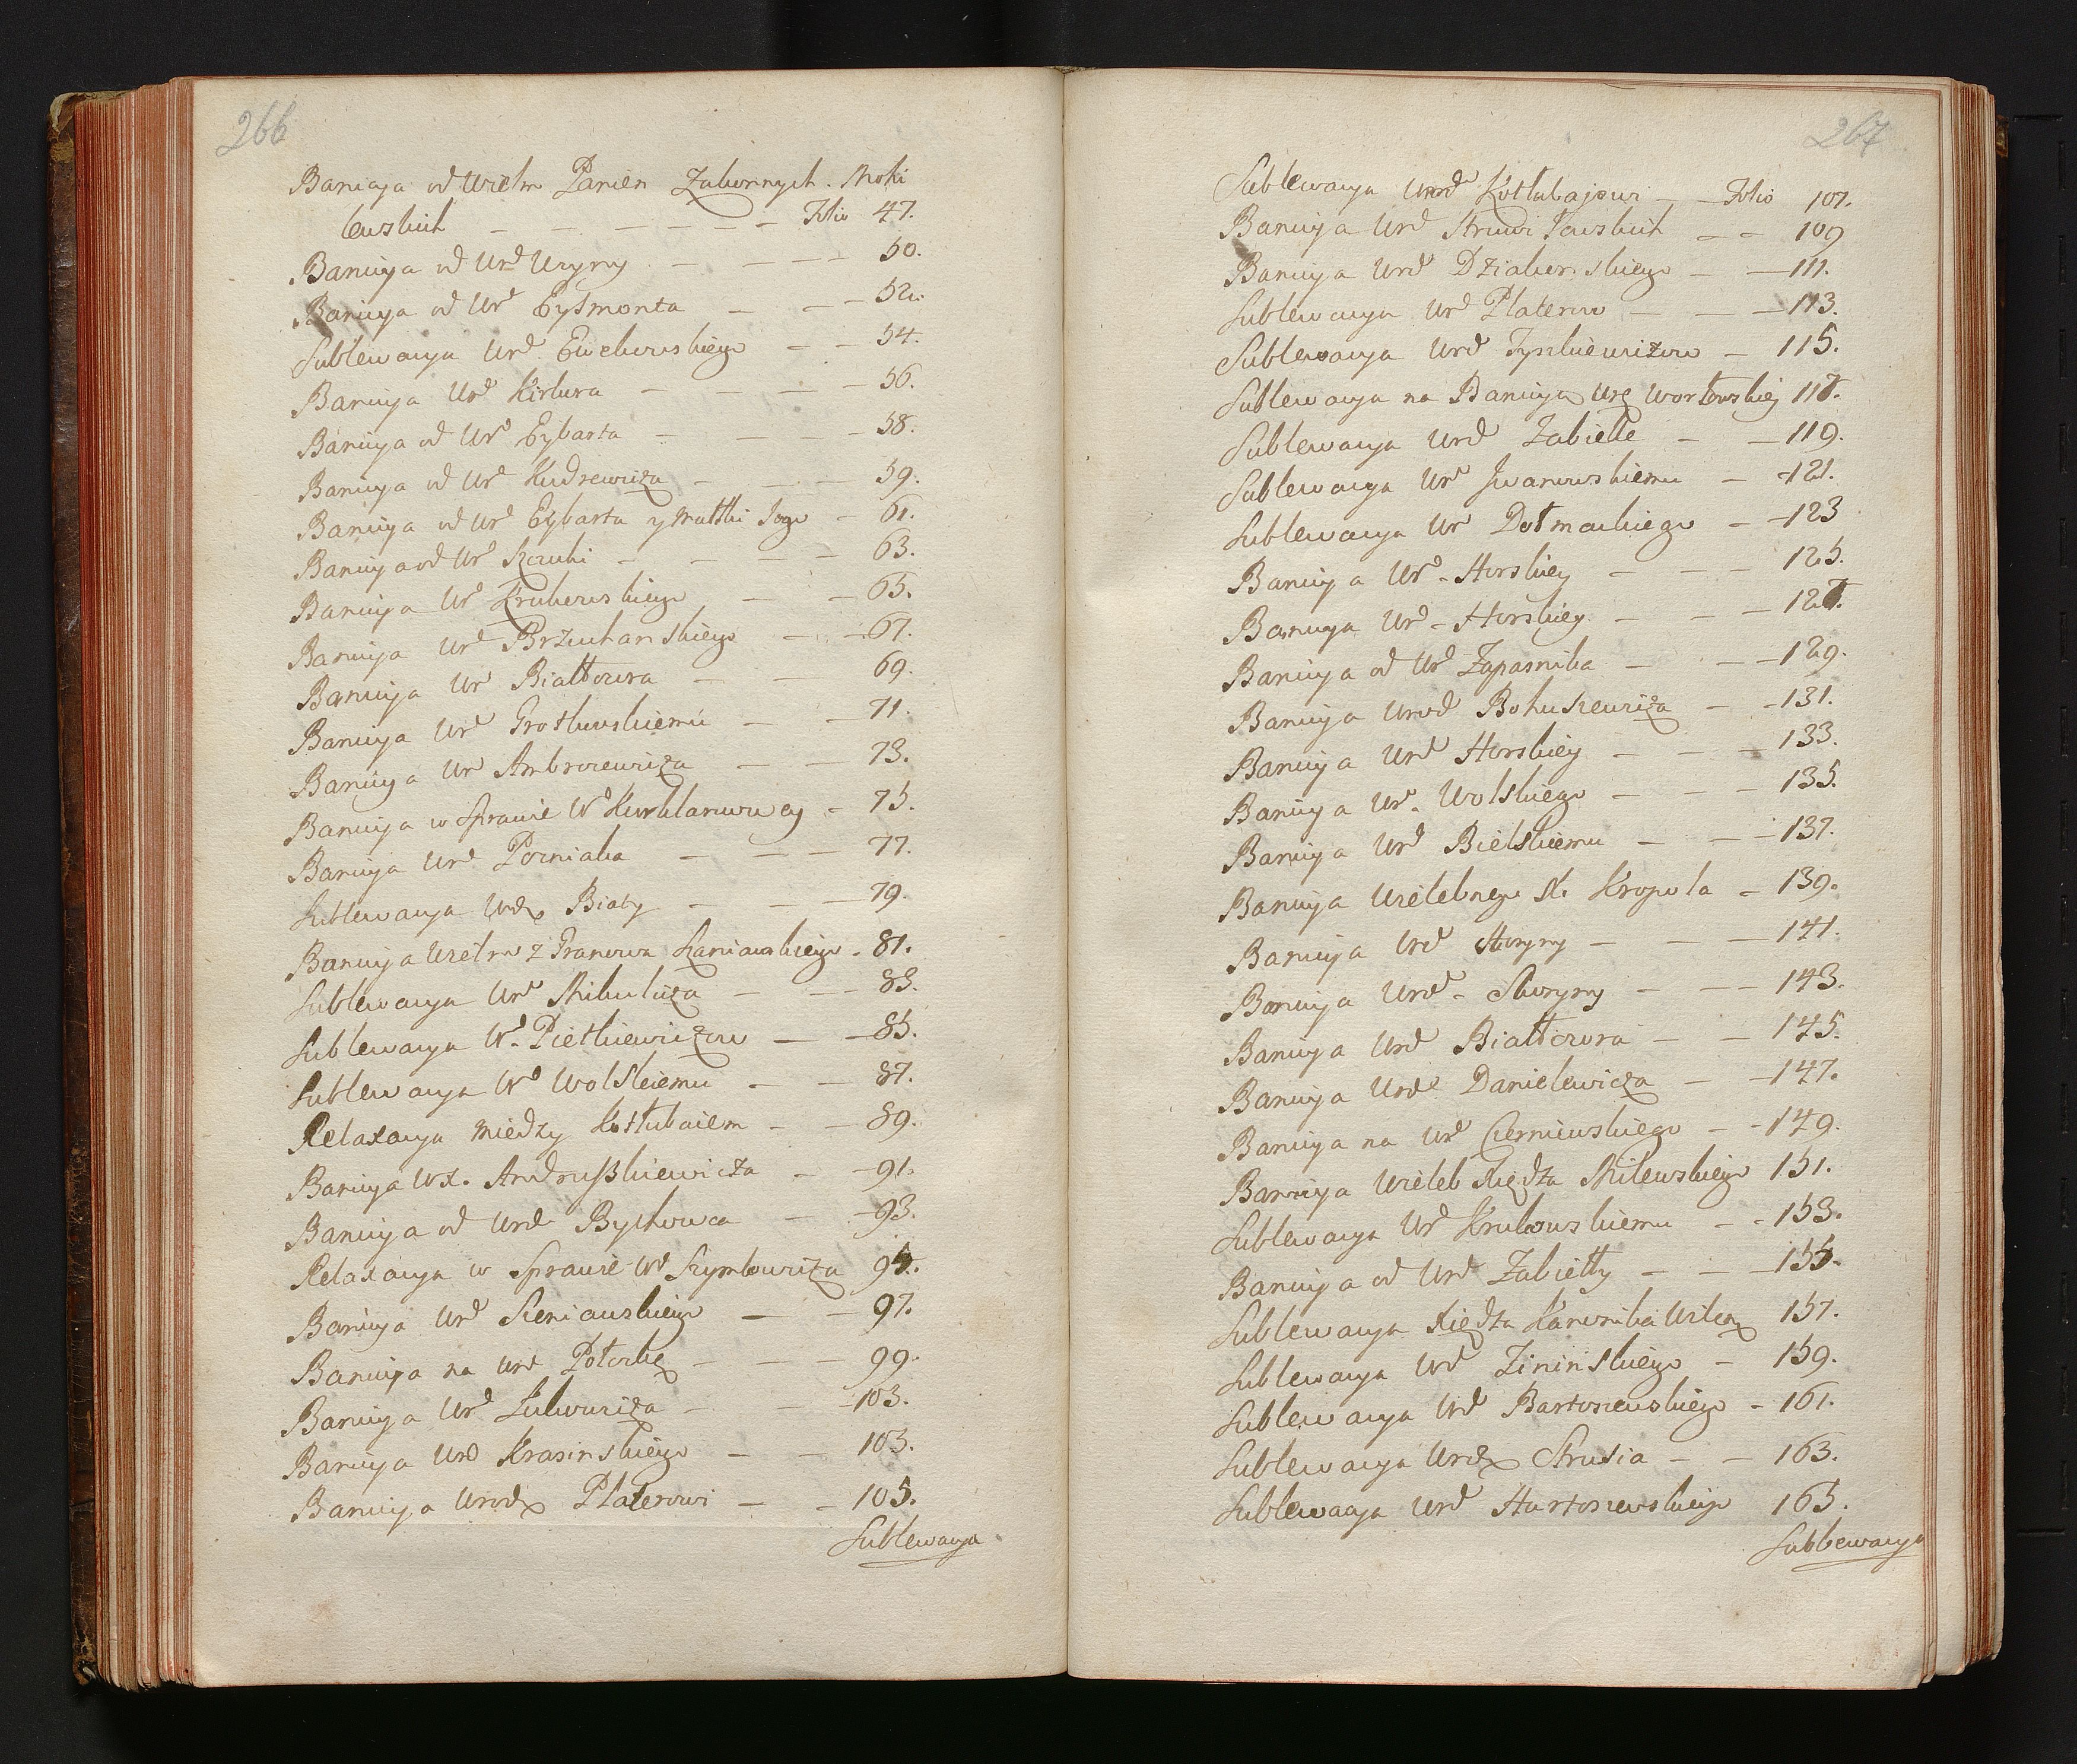 266
Banicya od Wielm Panien Zakonnych. Moki
lewskich — — — — — — Folio 47.
Banicya od Urd Uzyny — — — 50.
Banicya od Urd Eysmonta — — — 52.
Sublewacya Urd Ewchowskiego — — 54.
Banicya Urd Kirkura — — — — 56.
Banicya od Urd Eybarta — — — 58.
Banicya od Urd Kudrewicza — — — 59.
Banicya od Urd Eybarta y Mattki Jego — 61.
Banicya od Urd Szczuki — — — — 63.
Banicya Urd Krukowskiego — — 65.
Banicya Urd Brzuchanskiego — — 67.
Banicya Urd Białłozora — — 69.
Banicya Urd Grothuskiemu — — 71.
Banicya Urd Ambrozewicza — — 73.
Banicya w Sprawie Wd Kurklanowcy — 75.
Banicya Urd Pozniaka — — — 77.
Sublewacya Urdz Biały — — — 79.
Banicya Wielm z Granowa Szaniawskiego — 81.
Sublewacya Urd Mikulicza — — 83.
Sublewacya Wd Pietkiewiczow — — 85.
Sublewacya Wd Wolskiemu — — 87.
Relaxacya między Kotłubaiem — — 89.
Banicya WX. Andruszkiewicza — — 91.
Banicya od Urd Bychowca — — 93.
Relaxacya w Sprawie Wd Szymkowicza 95.
Banicya Urd Sieniawskiego — — 97.
Banicya na Urd Potocką — — — 99.
Banicya Urd Zukowicza — — 103.
Banicya Urd Krasinskiego — — 103.
Banicya Urodz Platerowi — — 105.
Sublewacya
267
Sublewacya Urod Kotłubajowi — — Folio 107.
Banicya Urd — — 109
Banicya Urd Działynskiego — — 111.
Sublewacya Urd Platerow — — — 113.
Sublewacya Urd Tyszkiewiczow — 115.
Sublewacya na Banicyą Urę Worłowskiej 117.
Sublewacya Urd Zabielle — — 119.
Sublewacya Urd Iwanowskiemu — 121.
Sublewacya Ur Dołmackiego — — 123
Banicya Urd Horskiey — — — 125.
Banicya Urd Horskiey — — — 127.
Banicya od Urd Zapasnika — — — 129.
Banicya Urod Bohuszewicza — — 131.
Banicya Urd Horskiey — — — 133.
Banicya Ur. Wolskiego — — — 135.
Banicya Urd Bielskiemu — — — 137.
Banicya Wielebnego X. Kropola — 139.
Banicya Urd Skoryny — — — 141.
Banicya Urd Skoryny — — — 143.
Banicya Urd Białłozora — — 145.
Banicya Urd Danielewicza — — 147.
Banicya na Urd Czerniewskiego — — 149.
Banicya Wieleb Xiędza Milewskiego 151.
Sublewacya Urd Krukowskiemu — — 153.
Banicya od Urd Zabiełły — — — 155.
Sublewacya Xiędza Kanonika Wileń 157.
Sublewacya Urd Zininskiego — 159.
Sublewacya Urd Bartoszewskiego — 161.
Sublewacya Urdz Strusia — — 163.
Sublewacya Urd Hartoszewskiego 165.
Sublewacya